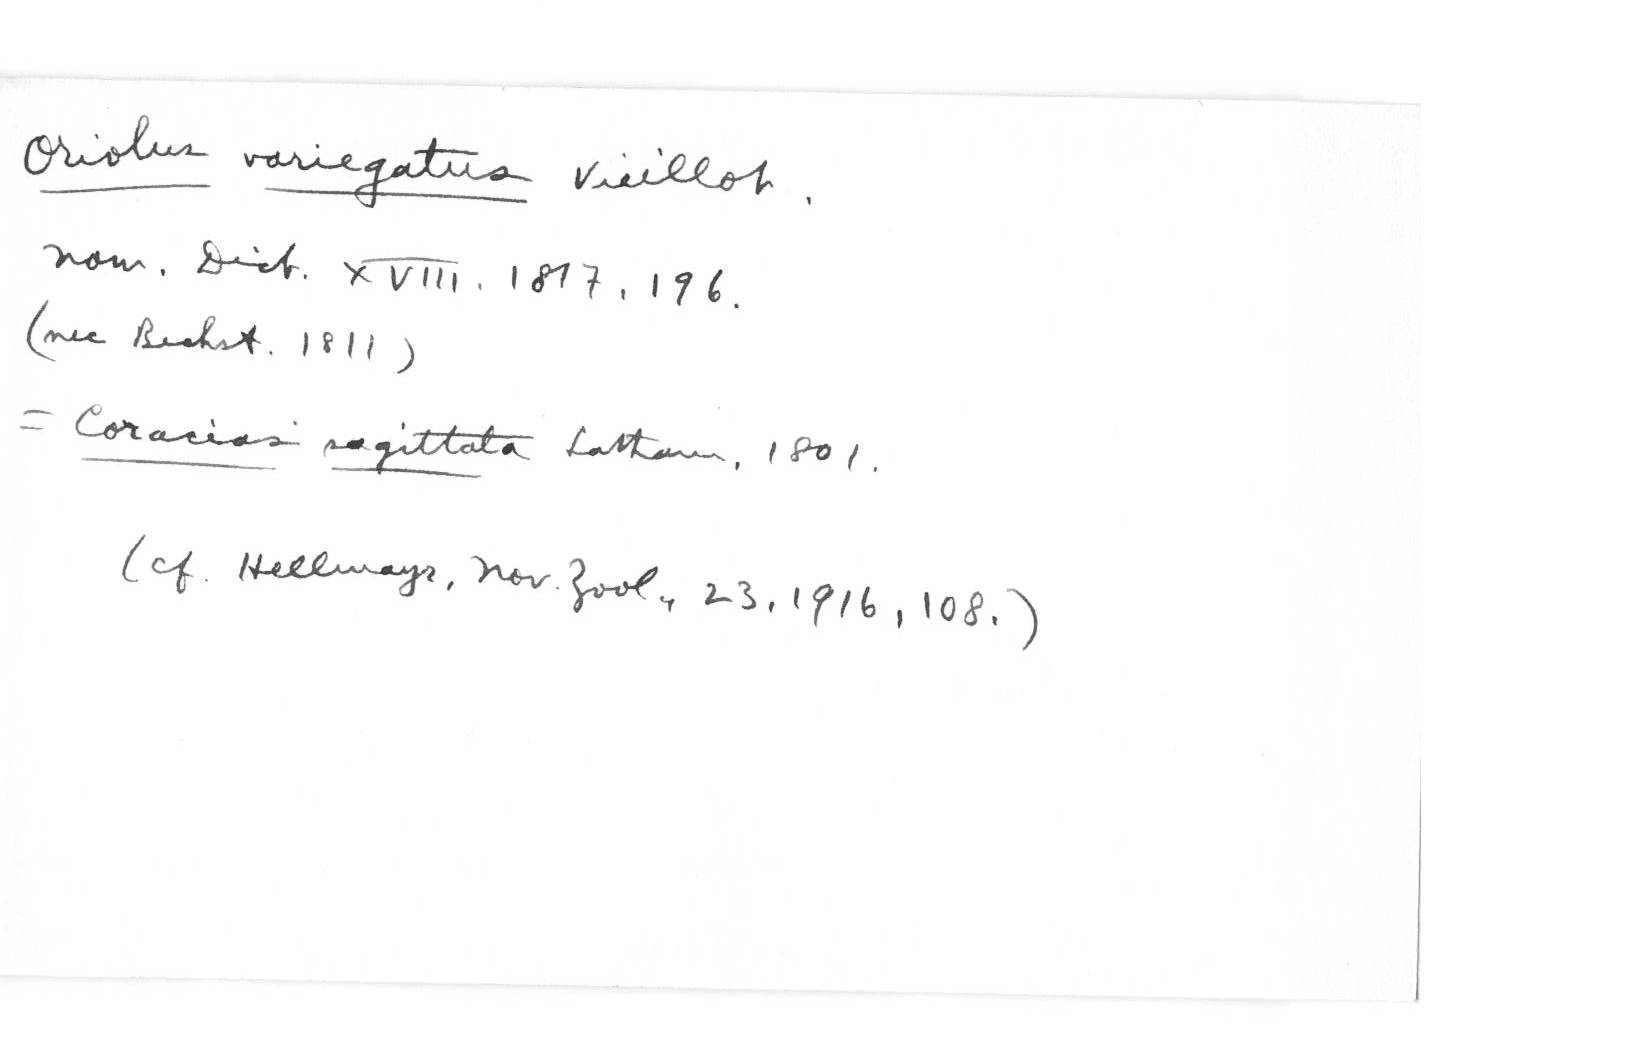 Oriolus variegatus Vieillot.
nouv. Dict. XVIII. 1817, 196.
(nec Bechst. 1811)
= Coracias sagittata Latham, 1801.
(cf. Hellmayr, Nov. Zool., 23, 1916, 108.)